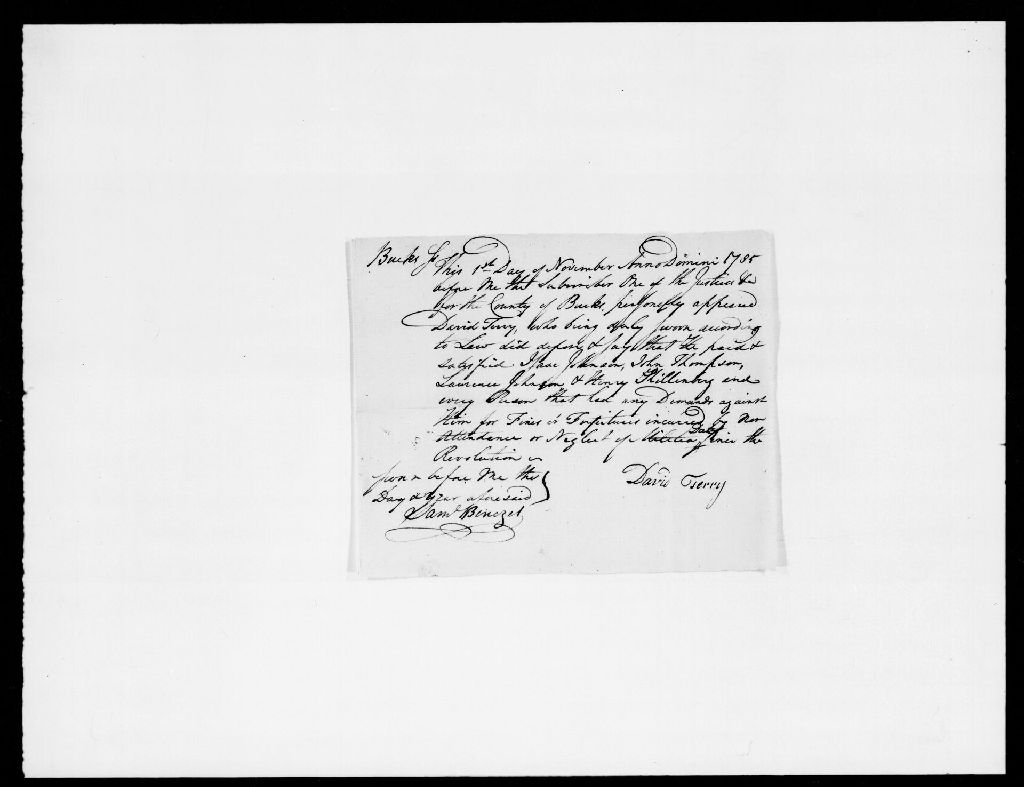 Bucks Ss This 1st Day of November Anno Domini 1785
before Me the Subscriber One of the Justices &c
for the County of Bucks, personelly appeared
David Terry, who being duly sworn according
to Law did depose & say that He paid &
satisfied Isaac Johnson, John Thompson,
Lawrence Johnson & Henry Skillinburg and
every Person that had any Demands against
Him for Fines or Forfeitures incurred by Non
Duty
Attendance or Neglect of Militia since the
Revolution
sworn before Me the
Day & Year aforesaid
Saml Benezet
David Terry